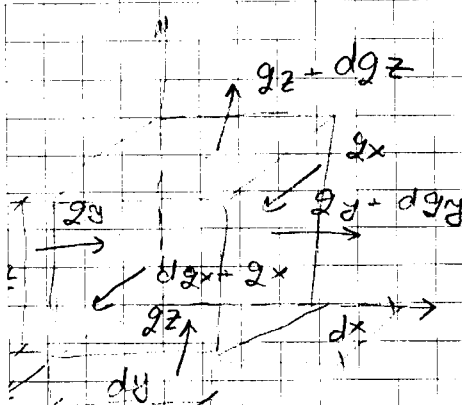 gz + dgz
gx
gy
gy + dgy
dgx + gx
gz
dx
dy